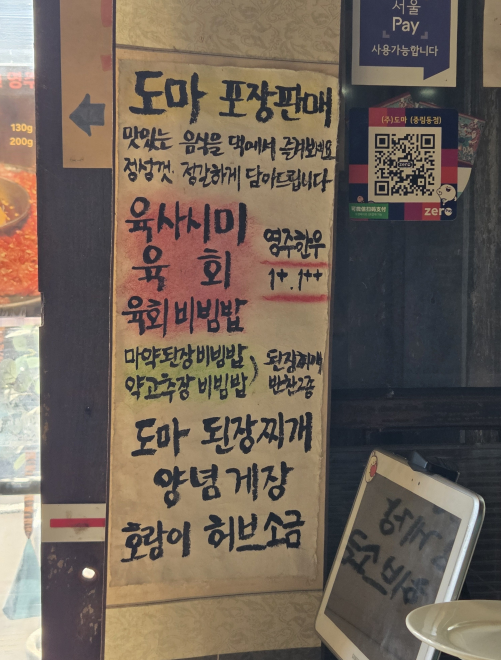 서울
Pay
사용가능합니다
130g
200g
도마 포장판매
맛있는 음식을 댁에서 즐겨보세요
정성껏 정갈하게 담아드립니다
육사시미
육 회
육회비빔밥
영주한우
1+.1++
마약된장비빔밥
약고추장비빔밥
된장찌개
반찬2종
도마 된장찌개
양념게장
호랑이 허브소금
(주)도마 (중림동점)
zero